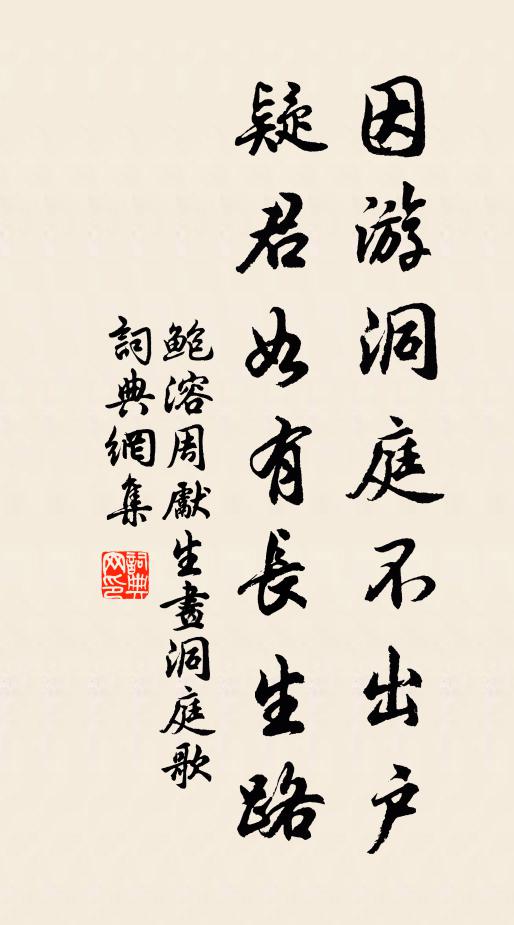 因游洞庭不出户
疑君如有長生路
鲍溶周獻生畫洞庭歌
詞典網集
詞典网印